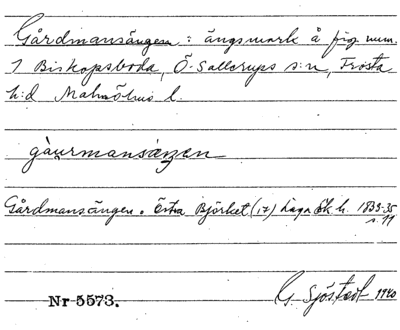 Gårdmansängen: ängsmark å fig. num.
7 Biskopsboda, Ö. Sallerups s:n, Frosta
h:d Malmöhus l.
gàu̥rmansàŋen
Gårdmansängen. Östra Björket (17) Laga sk. h. 1833-35
s. 11
G. Sjöstedt 1940
Nr 5573.